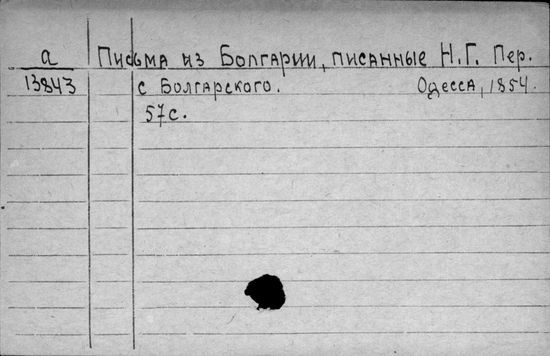 а Письма из Болгарии, писанные Н.Г. Пер.
13843 с Болгарского. Одесса, 1854.
57 с.